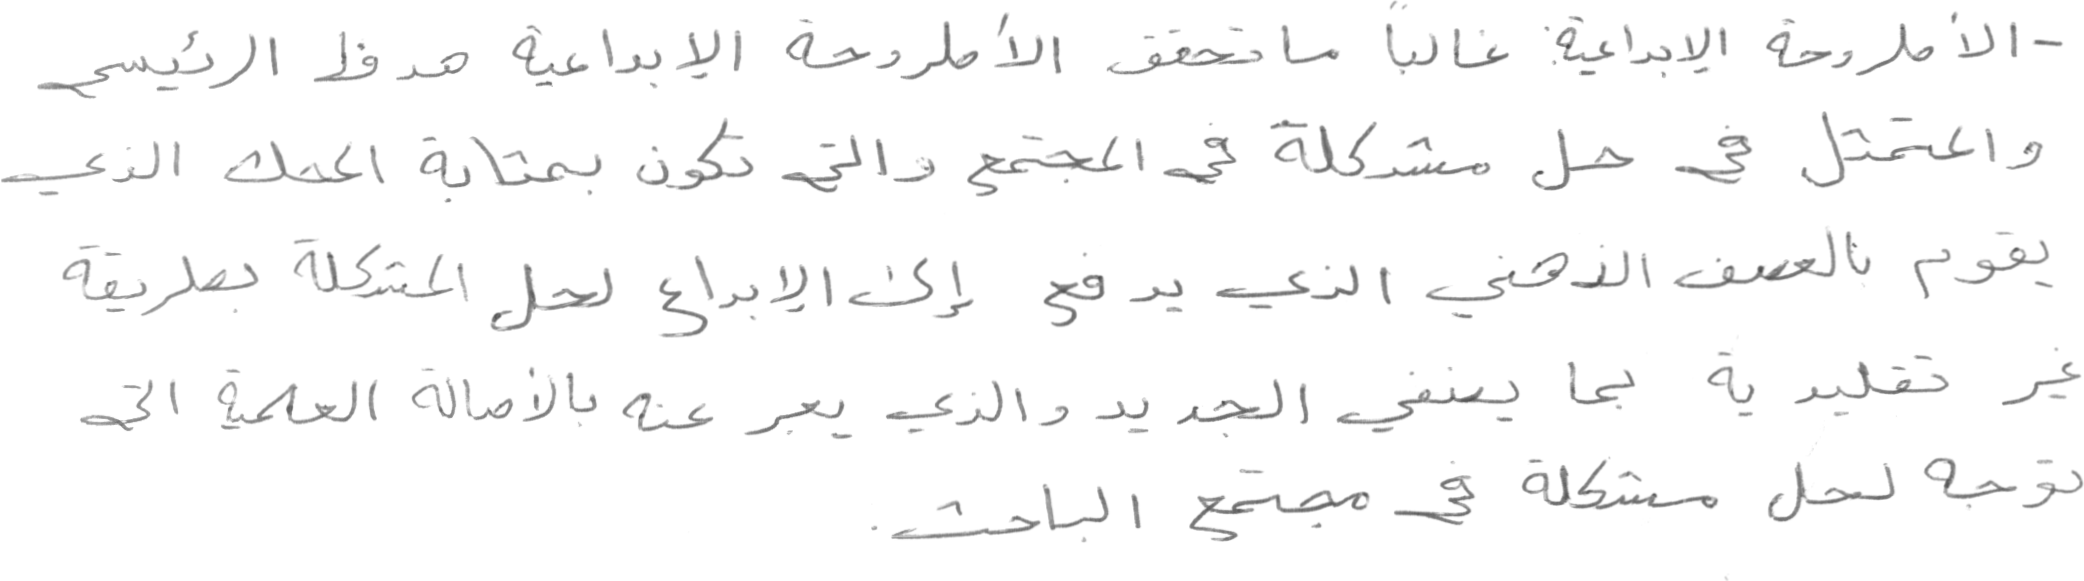 - الأطروحة الإبداعية: غالباً ما تحقق الأطروحة الإبداعية هدفها الرئيسي
والمتمثل في حل مشكلة في المجتمع والتي تكون بمثابة المحك الذي
يقوم بالعصف الذهني الذي يدفع إلى الإبداع لحل المشكلة بطريقة
غير تقليدية بما يضفي الجديد والذي يعبر عنه بالأصالة العلمية التي
توجه لحل مشكلة في مجتمع الباحث.